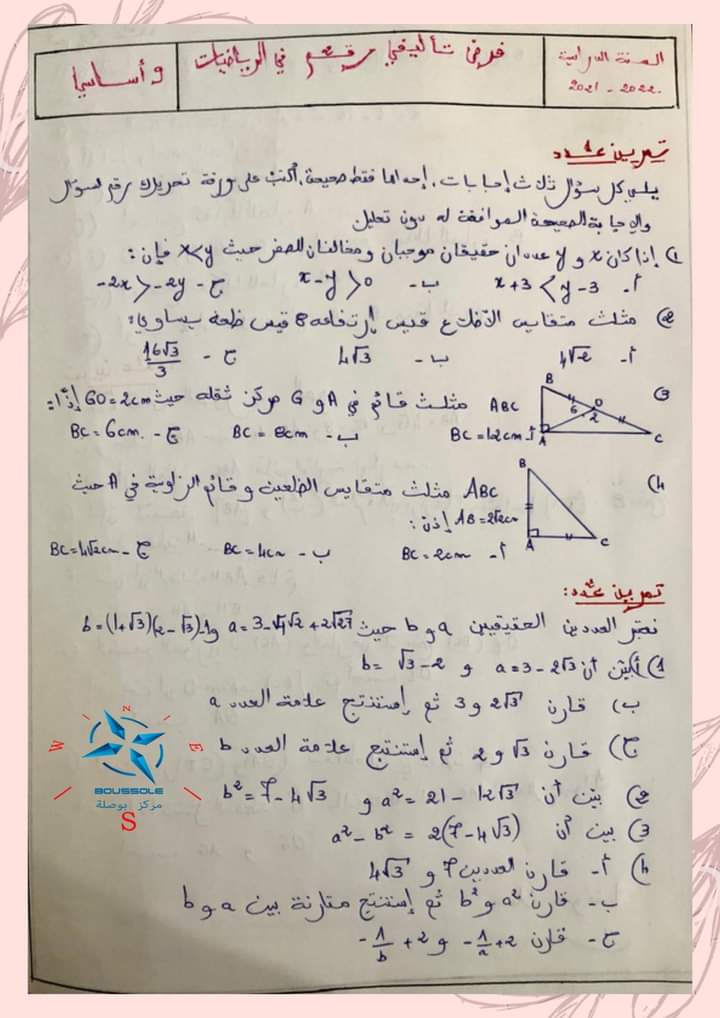 السنة الدراسية
2021 - 2022
فرض تأليفي رقم في الرياضيات
9 أساسي
تمرين عدد
يلي كل سؤال ثلاث إجابات، إحداها فقط صحيحة، أكتب على ورقة تحريرك رقم السؤال
والإجابة الصحيحة الموافقة له دون تعليل
1) إذا كان x و y عددان حقيقيان موجبان ومخالفان للصفر حيث x<y فإن:
أ- x+3 < y-3 ب- x-y > 0 ج- -2x > -2y
2) مثلث متقايس الأضلاع قيس إرتفاعه 8 قيس ضلعه يساوي:
أ- 4√2 ب- 4√3 ج- 16√3/3
3) ABC مثلث قائم في A و G مركز ثقله حيث GO=2cm إذا:
أ- BC=12cm ب- BC=8cm ج- BC=6cm.
B O G 2 A C
4) ABC مثلث متقايس الضلعين و قائم الزاوية في A حيث
AB=2√2cm إذن:
أ- BC=2cm ب- BC=4cm ج- BC=4√2cm
B A C
تمرين عدد:
نعتبر العددين الحقيقيين a و b حيث
b=(1+√3)(2-√3)
1) أ) بيّن أن a=3-2√3 و b=√3-2
ب) قارن 2√3 و 3 ثم إستنتج علامة العدد a
ج) قارن √3 و 2 ثم إستنتج علامة العدد b
2) بيّن أن a²=21-12√3 و b²=7-4√3
3) بين أن a²-b²=2(7-4√3)
4) أ- قارن العددين 7 و 4√3
ب- قارن a² و b² ثم إستنتج مقارنة بين a و b
ج- قارن -1/a+2 و -1/b+2
N
W
E
BOUSSOLE
مركز بوصلة
S